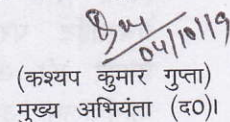 04/10/19
(कश्यप कुमार गुप्ता)
मुख्य अभियंता (द०)।